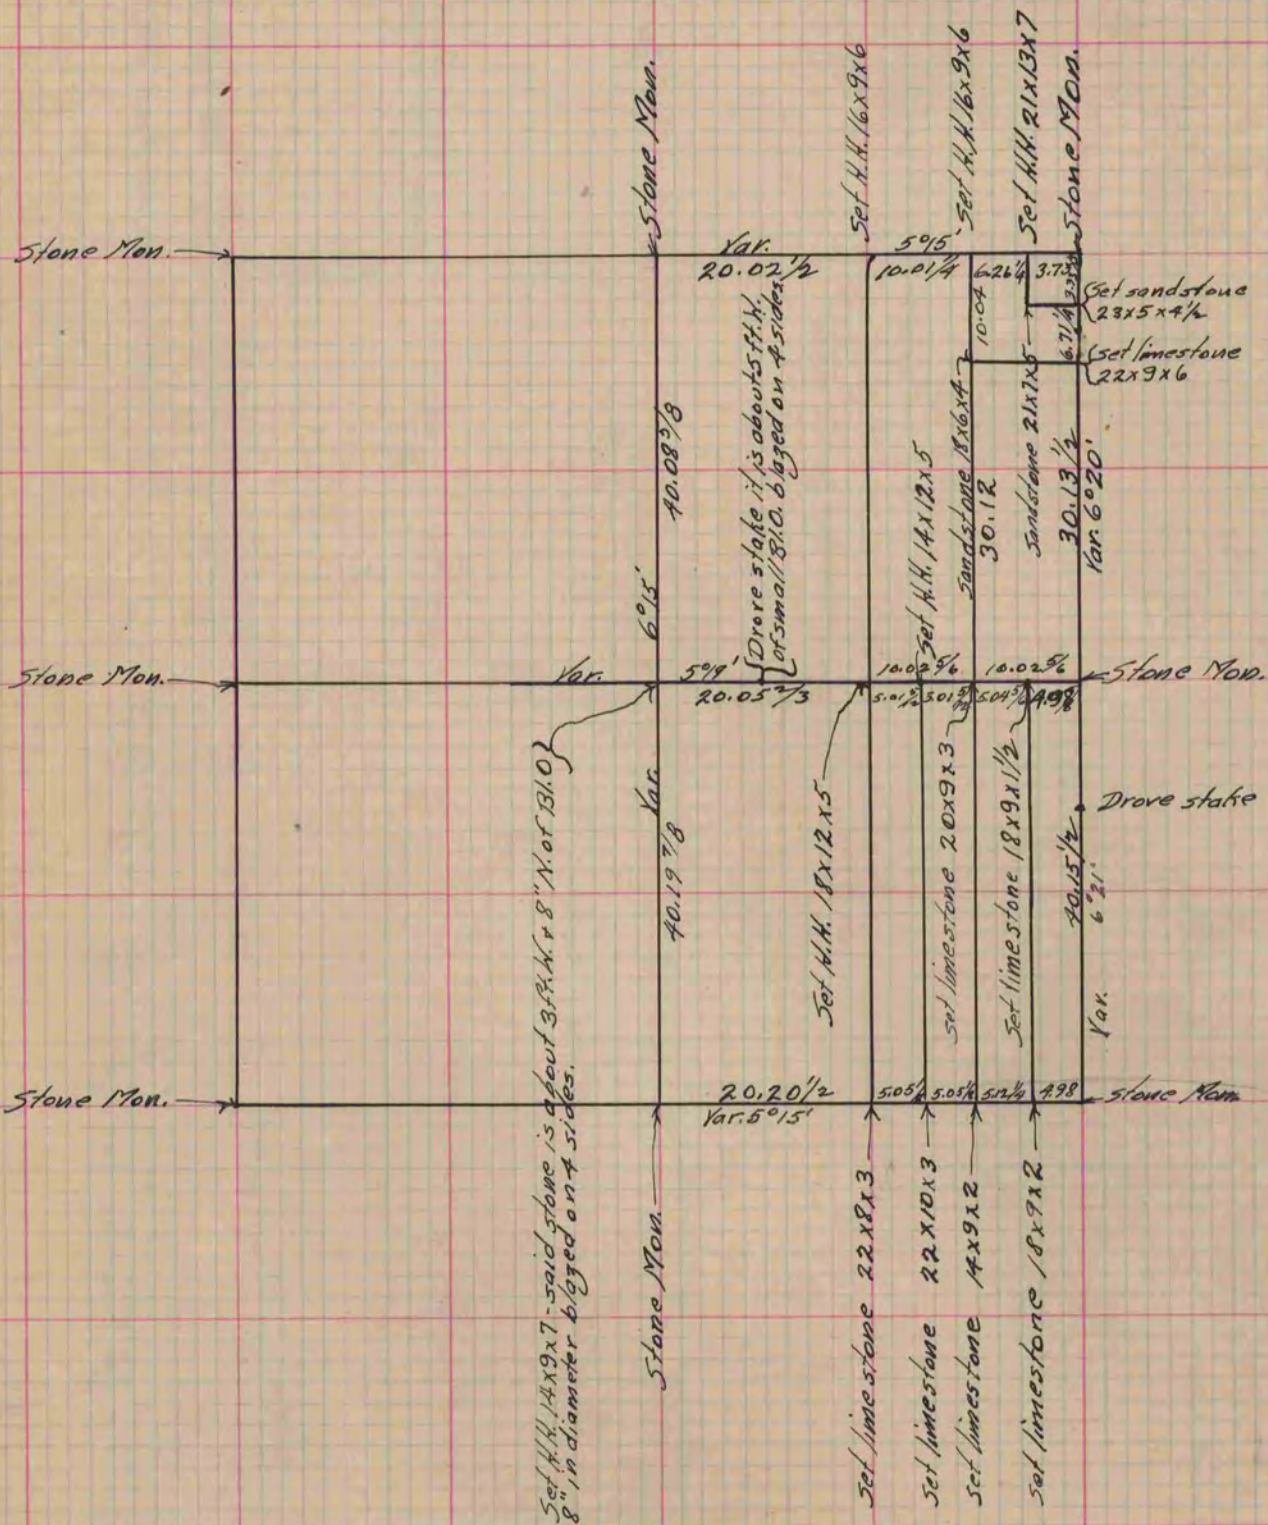 Stone Mon.
Set H.H. 16x9x6
Set H.H. 16x9x6
Set H.H. 21x13x7
Stone Mon.
Stone Mon.
Var.
5°15'
20.02 1/2
10.01 1/4
6.26 1/4
3.75
10.04
6.71 1/4
Set sandstone
23x5x4 1/2
Set limestone
22x9x6
40.08 5/8
6°15'
Drove stake it is about 5 ft. W.
of small Bl.O. blazed on 4 sides.
Set H.H. 14x12x5
Sandstone 18x6x4
30.12
Sandstone 21x7x5
30.13 1/2
Var. 6°20'
Stone Mon.
Var.
5°19'
20.05 2/3
10.02 5/6
10.02 5/6
Stone Mon.
5.04 5/6
Set H.H. 14x9x7 - said stone is about 3 ft. W. & 8" N. of Bl.O
8" in diameter blazed on 4 sides.
Var.
40.19 7/8
Set H.H. 18x12x5
Set limestone 20x9x3
Set limestone 18x9x1 1/2
Drove stake
40.15 1/2
6°21'
Var.
Stone Mon.
20.20 1/2
Var. 5°15'
5.12 1/4
4.98
Stone Mon.
Stone Mon.
Set limestone 22x8x3
Set limestone 22x10x3
Set limestone 14x9x2
Set limestone 18x9x2